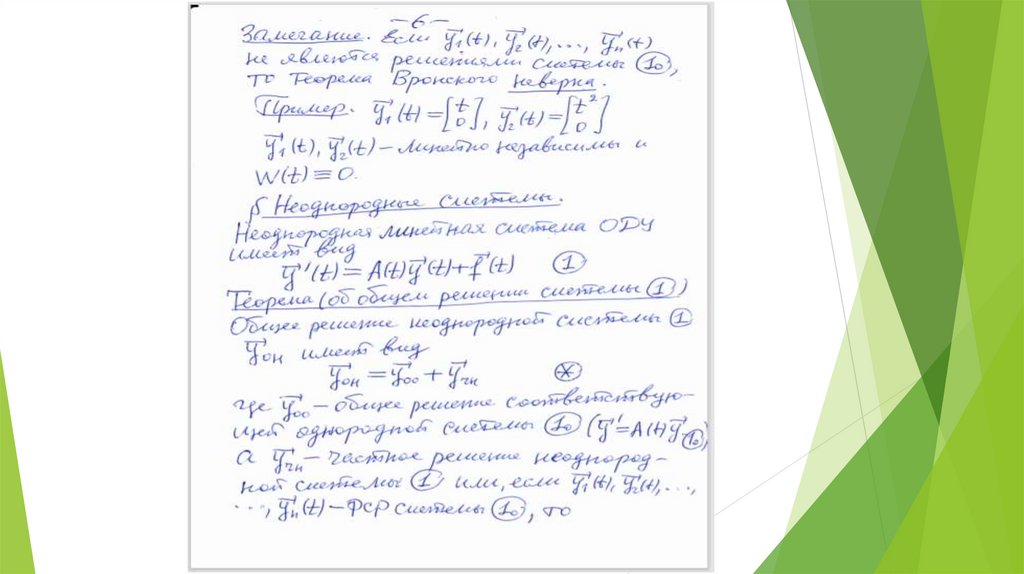 –6–
Замечание. Если y⃗₁(t), y⃗₂(t), ..., y⃗ₙ(t)
не являются решениями системы (1₀),
то теорема Вронского неверна.
Пример. y⃗₁(t) = [t 0], y⃗₂(t) = [t² 0]
y⃗₁(t), y⃗₂(t) – линейно независимы и
W(t) ≡ 0.
§ Неоднородные системы.
Неоднородная линейная система ОДУ
имеет вид
y⃗'(t) = A(t)y⃗(t) + f⃗(t) (1)
Теорема (об общем решении системы (1))
Общее решение неоднородной системы (1)
y⃗он имеет вид
y⃗он = y⃗оо + y⃗чн (*)
где y⃗оо – общее решение соответствую-
щей однородной системы (1₀) (y⃗' = A(t)y⃗ (1₀)),
а y⃗чн – частное решение неоднород-
ной системы (1) или, если y⃗₁(t), y⃗₂(t), ...,
..., y⃗ₙ(t) – ФСР системы (1₀), то